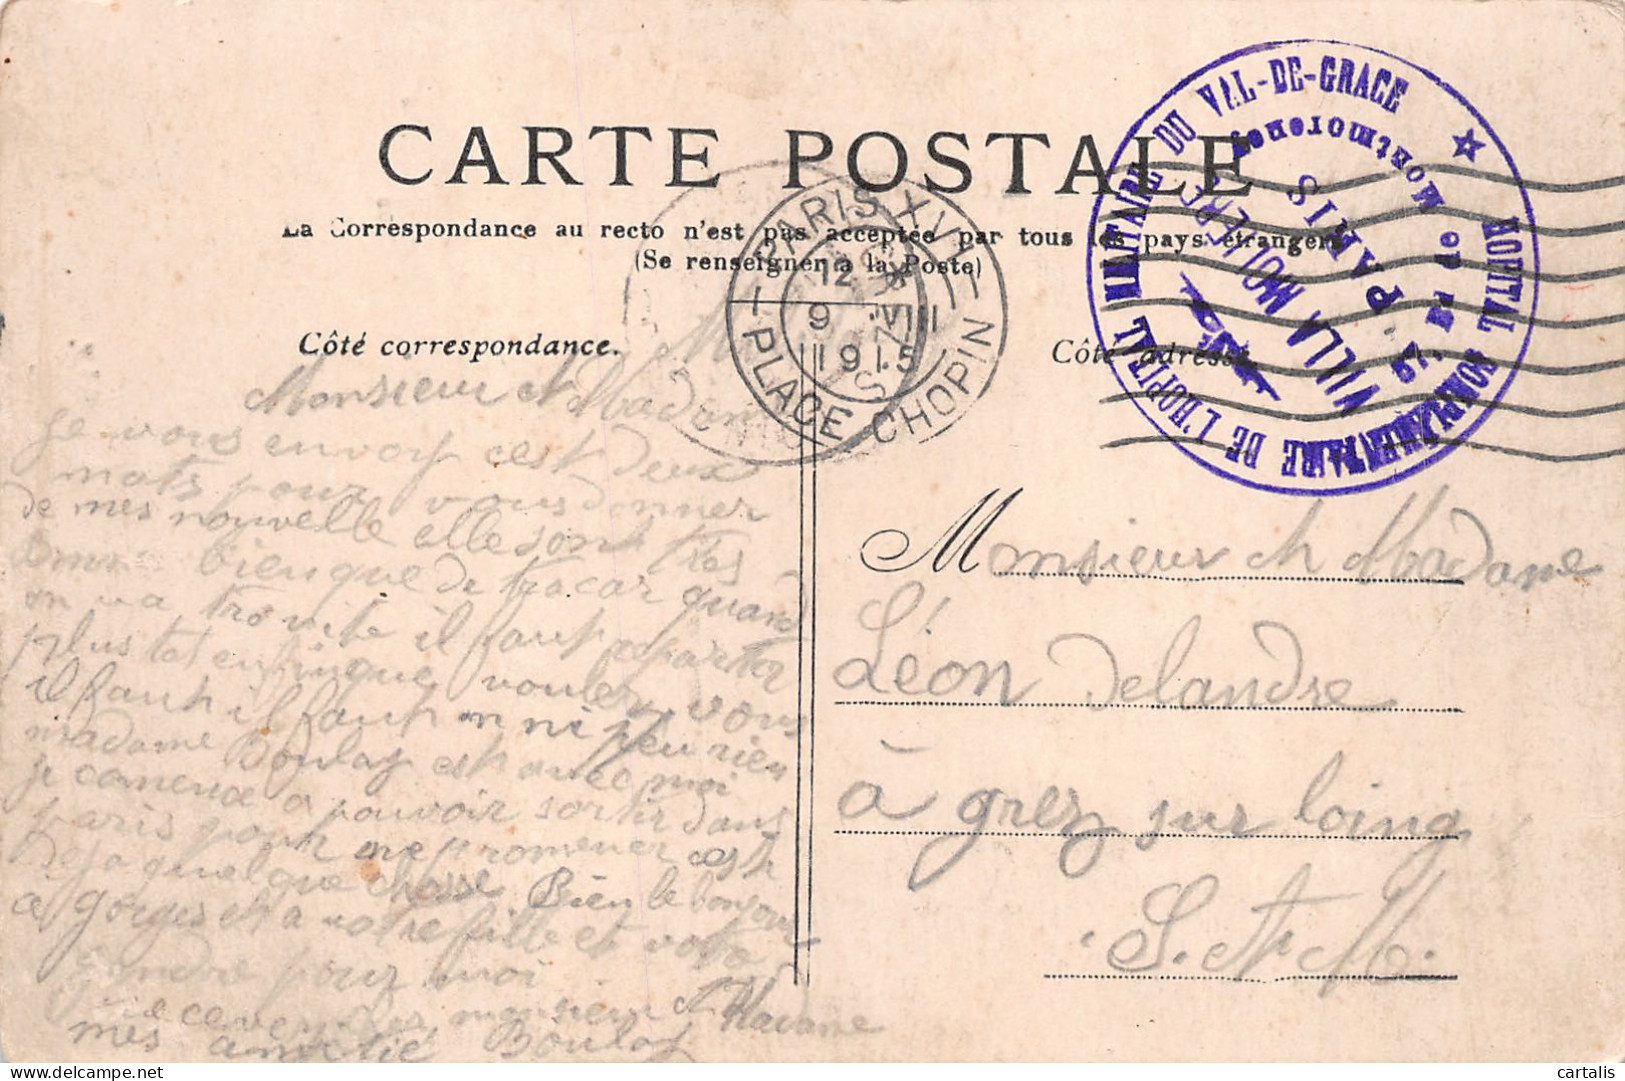 CARTE POSTALE
La Correspondance au recto n'est pas acceptée par tous les pays étrangers
(Se renseigner à la Poste)
Côté correspondance.
Côté adresse
PARIS XVI
12
9 VIII
1915
PLACE CHOPIN
HOPITAL COMPLÉMENTAIRE DE L'HOPITAL MILITAIRE DU VAL-DE-GRACE
VILLA MOLIERE
PARIS
de Montmorency
Monsieur et Madame
je vous envoy cest deux
mots pour vous donner
de mes nouvelle elle sont tres
bonne bien que de tracar quand
on va tro vite il faut
plus tat enfinque vouley vous
il faut il faut on ni peu rien
madame Boulay est avec moi
je comence a pouvoir sortir dans
paris pour me promener cest
Deja quelque chose Bien le bonjour
a gorges et a votre fille et
pour moi
Recevez monsieur et Madame
mes amitié Boulay
M Monsieur et Madame
Léon Delandre
à grez sur loing
S. et M.
cartalis
delcampe.net